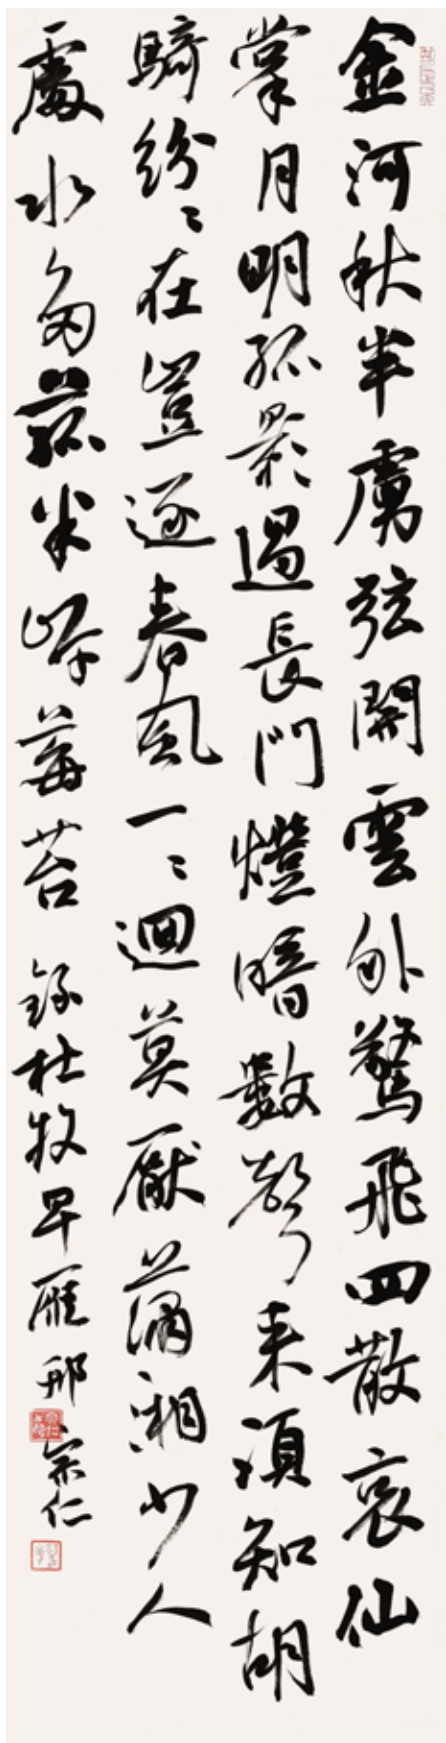 金河秋半虜弦開雲外驚飛四散哀仙
掌月明孤影過長門燈暗數聲来須知胡
騎紛〻在豈逐春風一〻迴莫厭瀟湘少人
處水多菰米岸莓苔 錄杜牧早雁 邢宗仁